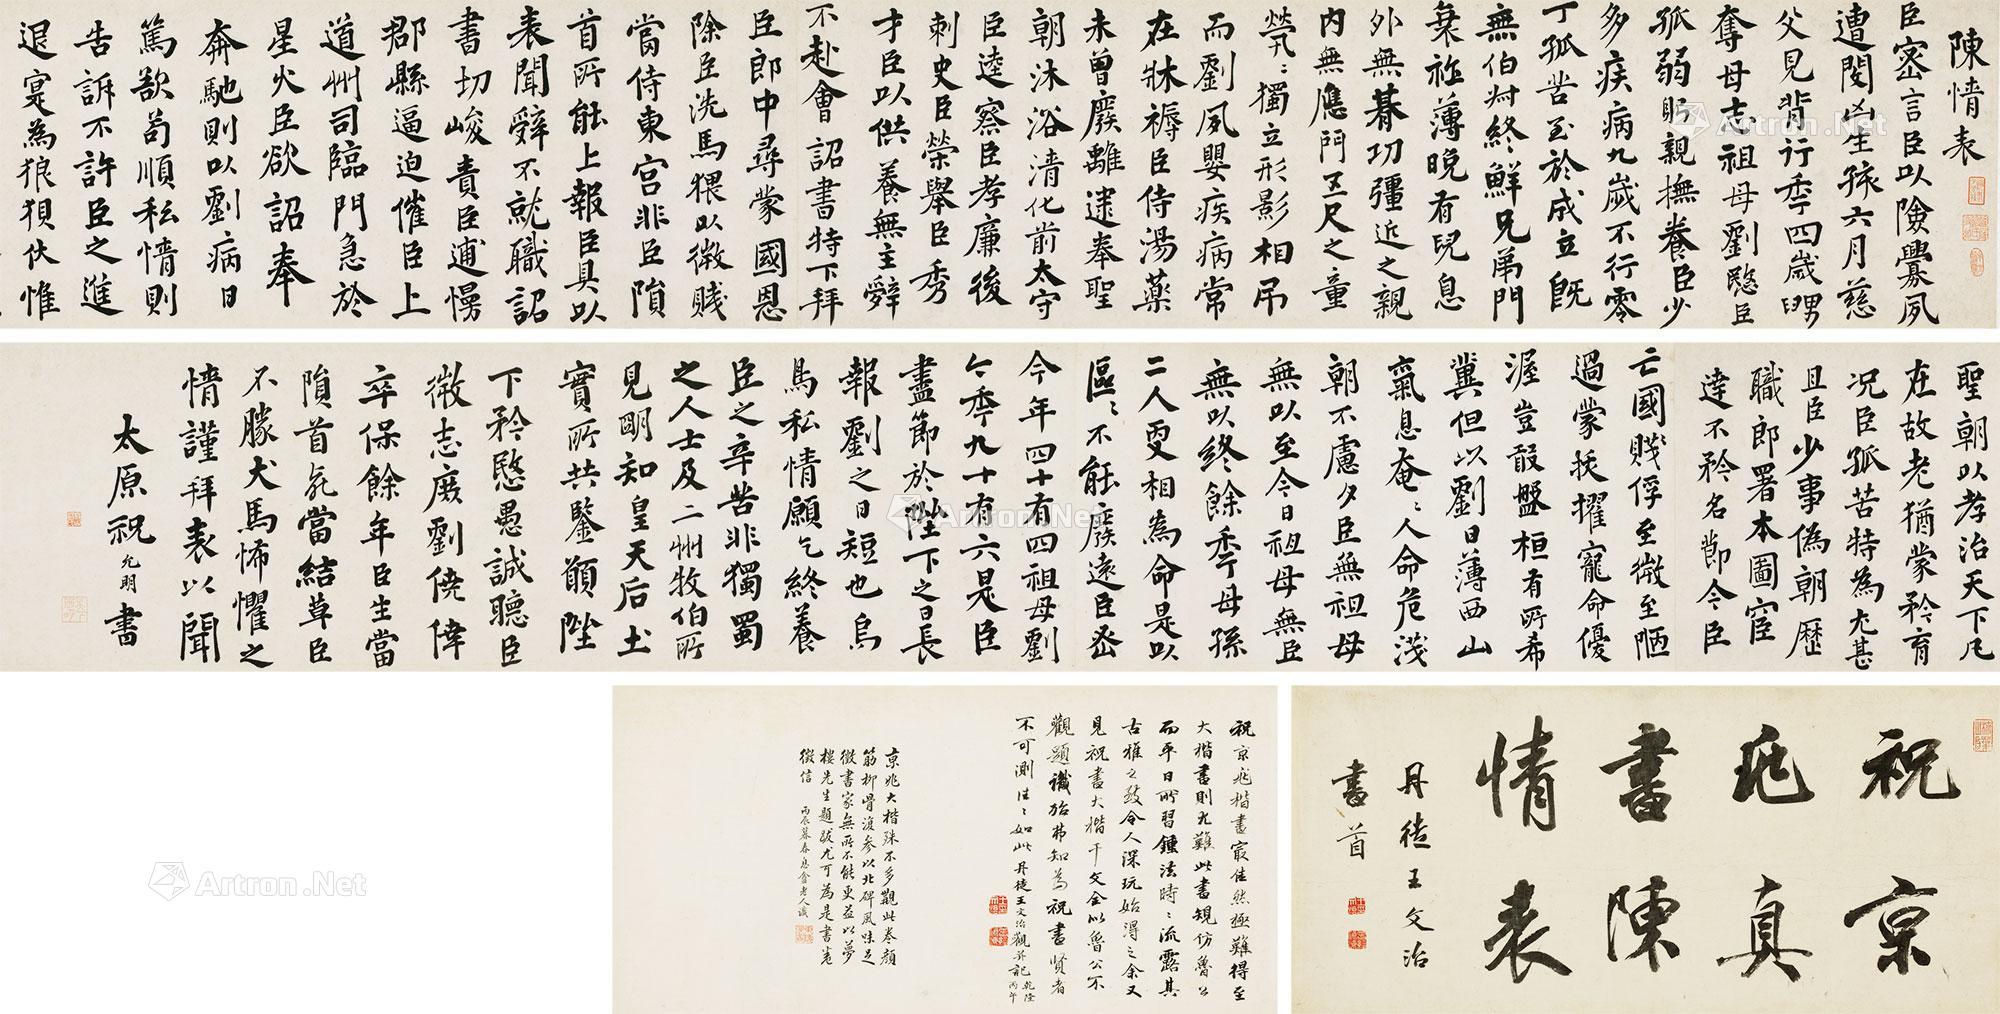 陳情表
臣密言臣以險釁夙
遭閔凶生孩六月慈
父見背行年四歲舅
奪母志祖母劉愍臣
孤弱躬親撫養臣少
多疾病九歲不行零
丁孤苦至於成立既
無伯叔終鮮兄弟門
衰祚薄晚有兒息
外無朞功彊近之親
內無應門五尺之童
煢煢獨立形影相吊
而劉夙嬰疾病常
在牀褥臣侍湯藥
未曾廢離逮奉聖
朝沐浴清化前太守
臣逵察臣孝廉後
刺史臣榮舉臣秀
才臣以供養無主辭
不赴會詔書特下拜
臣郎中尋蒙國恩
除臣洗馬猥以微賤
當侍東宮非臣隕
首所能上報臣具以
表聞辭不就職詔
書切峻責臣逋慢
郡縣逼迫催臣上
道州司臨門急於
星火臣欲詔奉
奔馳則以劉病日
篤欲苟順私情則
告訴不許臣之進
退寔為狼狽伏惟
聖朝以孝治天下凡
在故老猶蒙矜育
況臣孤苦特為尤甚
且臣少事偽朝歷
職郎署本圖宦
達不矜名節今臣
亡國賤俘至微至陋
過蒙拔擢寵命優
渥豈敢盤桓有所希
冀但以劉日薄西山
氣息奄奄人命危淺
朝不慮夕臣無祖母
無以至今日祖母無臣
無以終餘年母孫
二人更相為命是以
區區不能廢遠臣密
今年四十有四祖母劉
今年九十有六是臣
盡節於陛下之日長
報劉之日短也烏
鳥私情願乞終養
臣之辛苦非獨蜀
之人士及二州牧伯所
見明知皇天后土
實所共鑒願陛
下矜愍愚誠聽臣
微志庶劉僥倖
卒保餘年臣生當
隕首死當結草臣
不勝犬馬怖懼之
情謹拜表以聞
太原祝允明書
祝京
兆真
書陳
情表
丹徒王文治
書首
祝京兆楷書最佳然極難得至
大楷書則尤難此書規仿魯公
而平日所習鍾法時時流露其
古雅之致令人深玩始得之余又
見祝書大楷千文全似魯公不
觀題識殆弗知為祝書賢者
不可測往往如此丹徒王文治觀并記乾隆
丙午
京兆大楷殊不多觀此卷顏
筋柳骨復參以北碑風味足
徵書家無所不能更益以夢
樓先生題跋尤可為是書卷
徵信 丙辰暮春息盦老人識
Artron.Net
Artron.Net
Artron.Net
Artron.Net